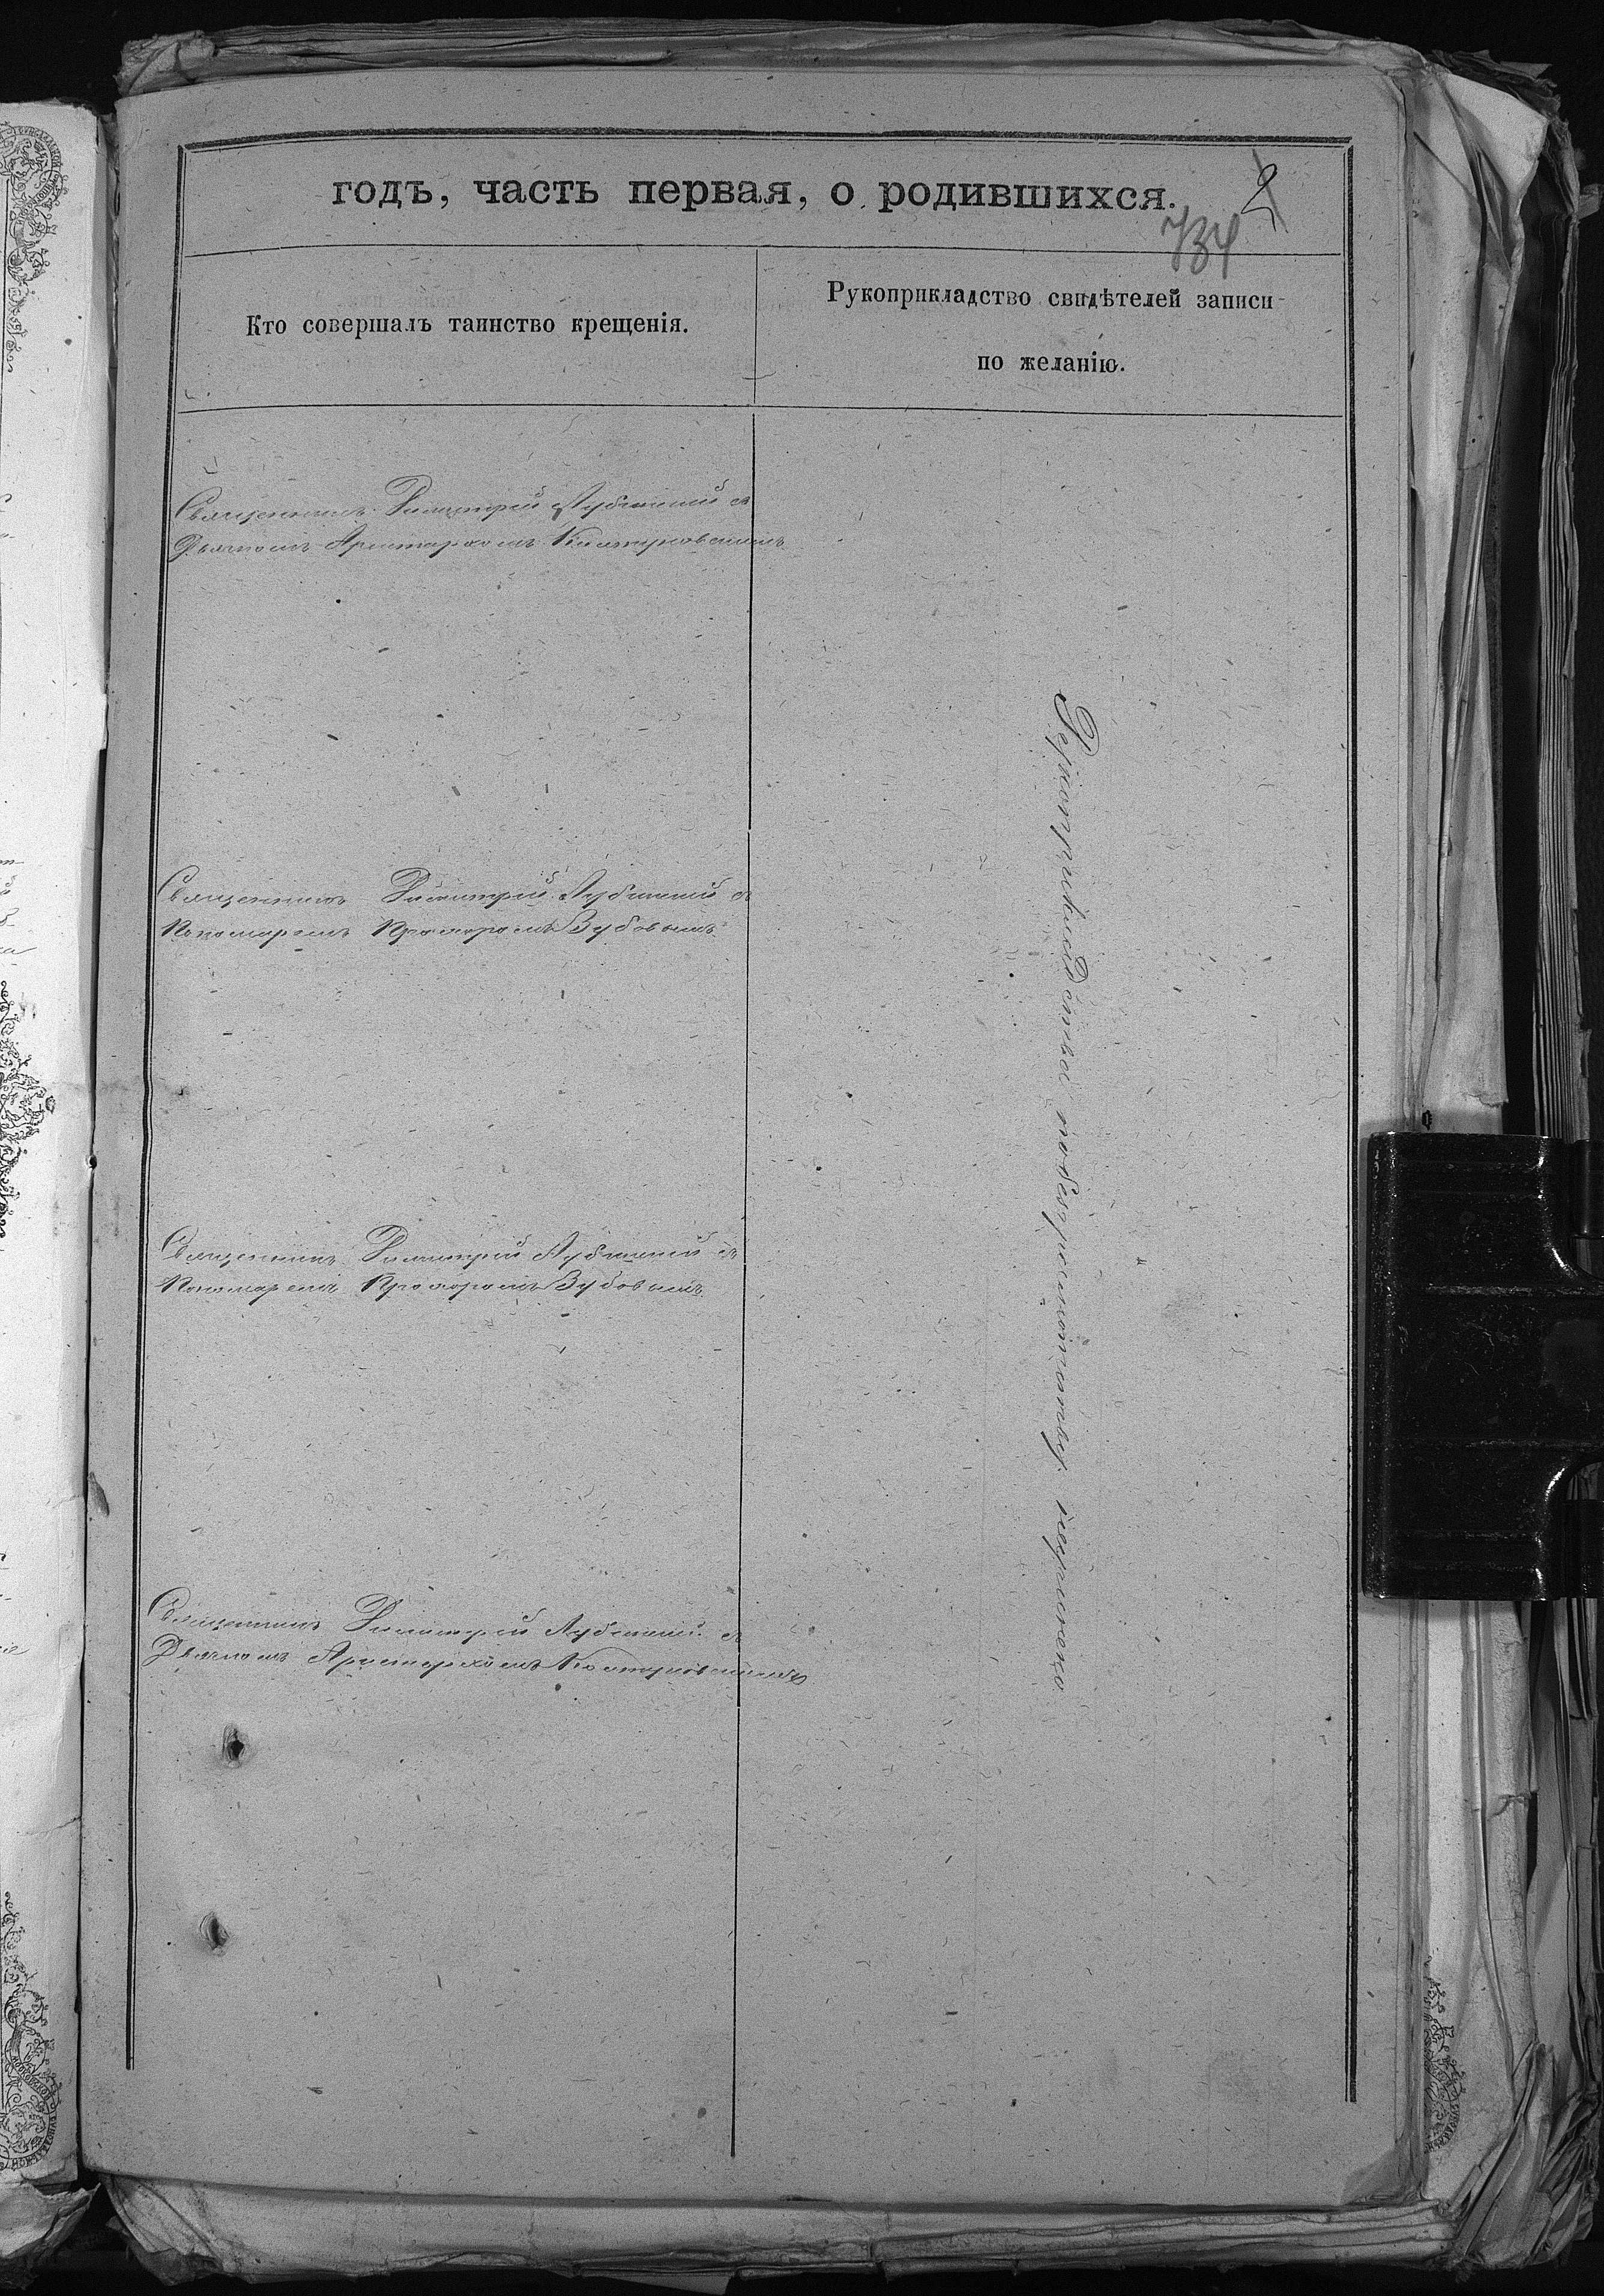 годъ, часть первая, о родившихся.
2
734
Кто совершалъ таинство крещенія.
Рукоприкладство свидѣтелей записи
по желанію.
Священникъ Димитрій Лубянскій съ
Дьячкомъ Аристархомъ
Священникъ Димитрій Лубянскій съ
Пономаремъ Прохоромъ Зубовымъ
Священникъ Димитрій Лубянскій съ
Пономаремъ Прохоромъ Зубовымъ
Священникъ Димитрій Лубянскій съ
Дьячкомъ Аристархомъ
Рукоприкладства